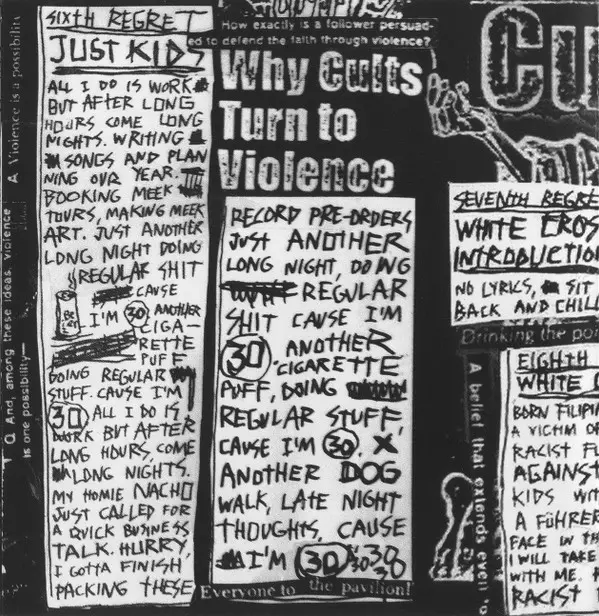 SIXTH REGRET
JUST KIDS
ALL I DO IS WORK
BUT AFTER LONG
HOURS COME LONG
NIGHTS. WRITING
SONGS AND PLAN
NING OUR YEAR.
BOOKING MEEK
TOURS, MAKING MEEK
ART. JUST ANOTHER
LONG NIGHT DOING
REGULAR SHIT
CAUSE
I'M 30 ANOTHER
CIGA-
RETTE
PUFF
DOING REGULAR
STUFF. CAUSE I'M
30 ALL I DO IS
WORK BUT AFTER
LONG HOURS, COME
LONG NIGHTS.
MY HOMIE NACHO
JUST CALLED FOR
A QUICK BUSINESS
TALK. HURRY,
I GOTTA FINISH
PACKING THESE
How exactly is a follower persuad-
ed to defend the faith through violence?
Why Cults
Turn to
Violence
RECORD PRE-ORDERS
JUST ANOTHER
LONG NIGHT, DOING
REGULAR
SHIT CAUSE I'M
30 ANOTHER
CIGARETTE
PUFF, DOING
REGULAR STUFF,
CAUSE I'M 30. X
ANOTHER DOG
WALK, LATE NIGHT
THOUGHTS, CAUSE
I'M 30 30 30
Everyone to the pavilion!
Cu
SEVENTH REGRE
WHITE CROS
INTRODUCTIO
NO LYRICS, SIT
BACK AND CHILL
Drinking the poi
EIGHTH
WHITE C
BORN FILIPI
A VICTIM OF
RACIST FU
AGAINST
KIDS WIT
A FÜHRER
FACE IN TH
I WILL TAKE
WITH ME.
RACIST
A belief that extends even
A Violence is a possibilit
Q And, among these ideas, violence
is one possibility—